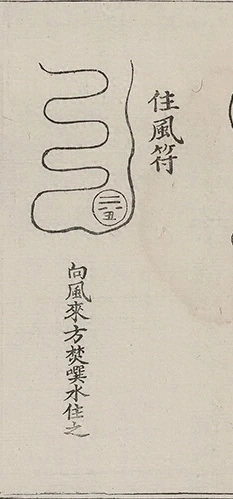 住風符
三六
丑
向風來方焚噀水住之